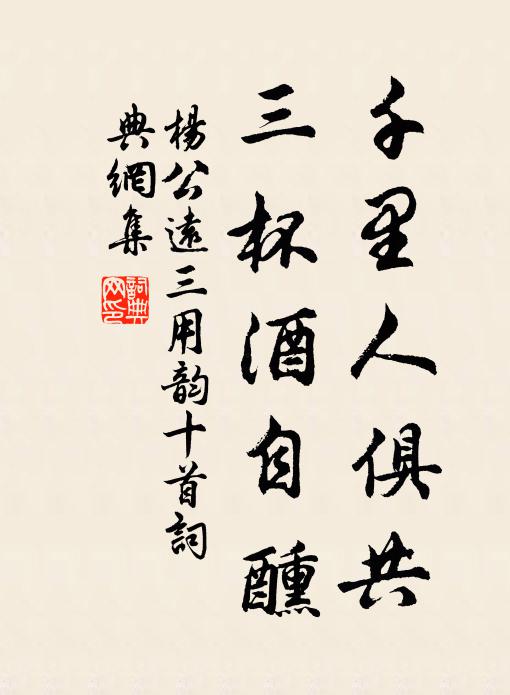 千里人俱共
三杯酒自醺
楊公遠三用韵十首詞
典網集
詞典網印